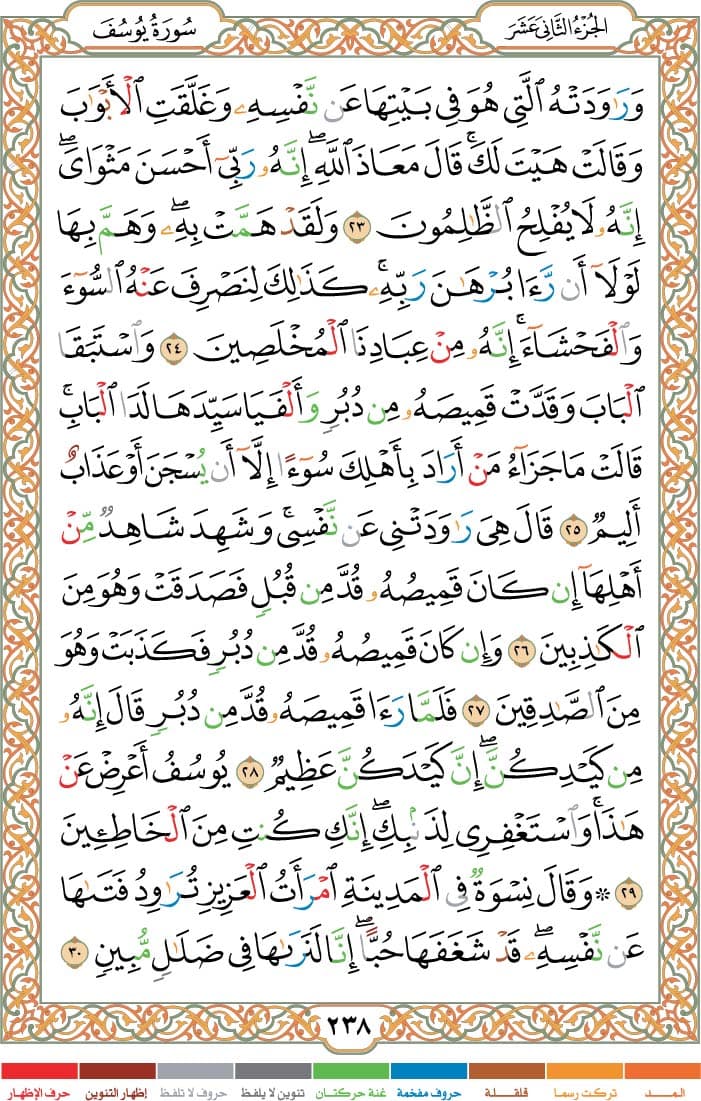 الجُزْءُ الثَّانِيَ عَشَرَ
سُورَةُ يُوسُفَ
وَرَٰوَدَتْهُ ٱلَّتِى هُوَ فِى بَيْتِهَا عَن نَّفْسِهِۦ وَغَلَّقَتِ ٱلْأَبْوَٰبَ
وَقَالَتْ هَيْتَ لَكَ ۚ قَالَ مَعَاذَ ٱللَّهِ ۖ إِنَّهُۥ رَبِّىٓ أَحْسَنَ مَثْوَاىَ ۖ
إِنَّهُۥ لَا يُفْلِحُ ٱلظَّٰلِمُونَ ٢٣ وَلَقَدْ هَمَّتْ بِهِۦ ۖ وَهَمَّ بِهَا
لَوْلَآ أَن رَّءَا بُرْهَٰنَ رَبِّهِۦ ۚ كَذَٰلِكَ لِنَصْرِفَ عَنْهُ ٱلسُّوٓءَ
وَٱلْفَحْشَآءَ ۚ إِنَّهُۥ مِنْ عِبَادِنَا ٱلْمُخْلَصِينَ ٢٤ وَٱسْتَبَقَا
ٱلْبَابَ وَقَدَّتْ قَمِيصَهُۥ مِن دُبُرٍ وَأَلْفَيَا سَيِّدَهَا لَدَا ٱلْبَابِ ۚ
قَالَتْ مَا جَزَآءُ مَنْ أَرَادَ بِأَهْلِكَ سُوٓءًا إِلَّآ أَن يُسْجَنَ أَوْ عَذَابٌ
أَلِيمٌ ٢٥ قَالَ هِىَ رَٰوَدَتْنِى عَن نَّفْسِى ۚ وَشَهِدَ شَاهِدٌ مِّنْ
أَهْلِهَآ إِن كَانَ قَمِيصُهُۥ قُدَّ مِن قُبُلٍ فَصَدَقَتْ وَهُوَ مِنَ
ٱلْكَٰذِبِينَ ٢٦ وَإِن كَانَ قَمِيصُهُۥ قُدَّ مِن دُبُرٍ فَكَذَبَتْ وَهُوَ
مِنَ ٱلصَّٰدِقِينَ ٢٧ فَلَمَّا رَءَا قَمِيصَهُۥ قُدَّ مِن دُبُرٍ قَالَ إِنَّهُۥ
مِن كَيْدِكُنَّ ۖ إِنَّ كَيْدَكُنَّ عَظِيمٌ ٢٨ يُوسُفُ أَعْرِضْ عَنْ
هَٰذَا ۚ وَٱسْتَغْفِرِى لِذَنۢبِكِ ۖ إِنَّكِ كُنتِ مِنَ ٱلْخَاطِـِٔينَ
٢٩ ۞ وَقَالَ نِسْوَةٌ فِى ٱلْمَدِينَةِ ٱمْرَأَتُ ٱلْعَزِيزِ تُرَٰوِدُ فَتَىٰهَا
عَن نَّفْسِهِۦ ۖ قَدْ شَغَفَهَا حُبًّا ۖ إِنَّا لَنَرَىٰهَا فِى ضَلَٰلٍ مُّبِينٍ ٣٠
٢٣٨
المــــد تركت رسما قلقلة حروف مفخمة غنة حركتان تنوين لا يلفظ حروف لا تلفظ إظهار التنوين حرف الإظهار